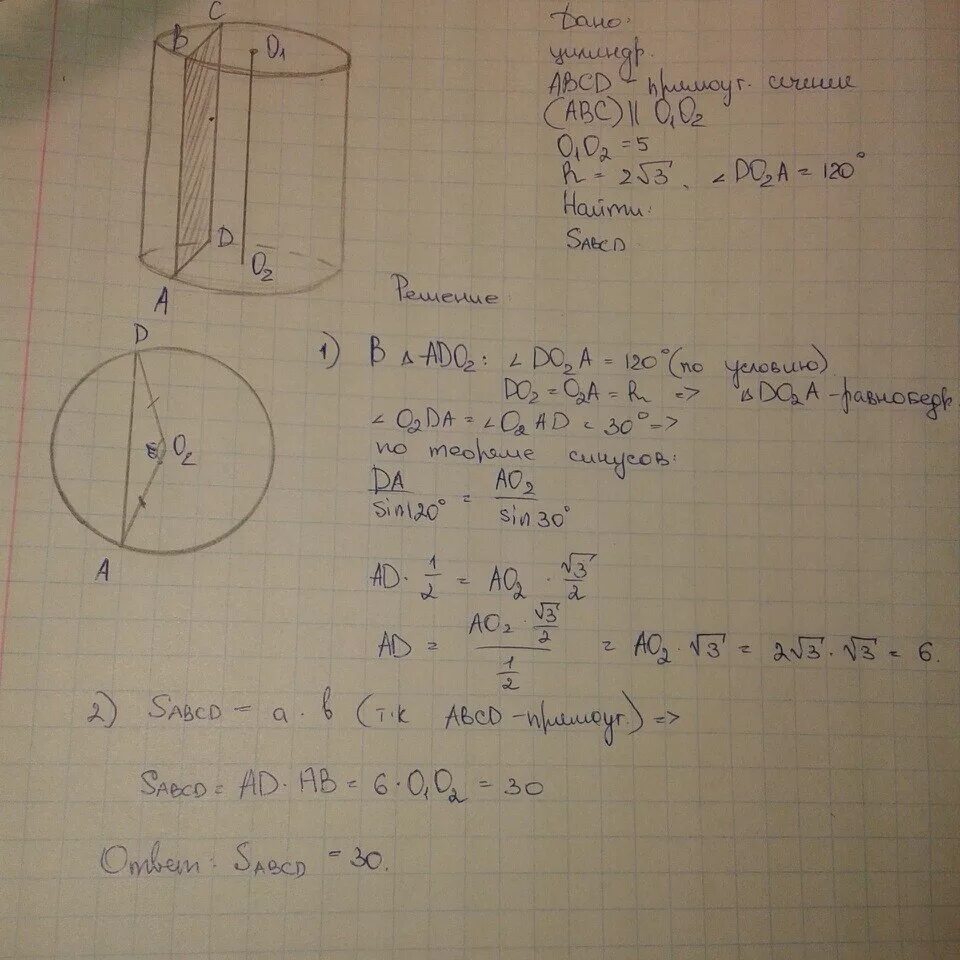 C
B
O₁
D
O₂
A
Дано:
цилиндр.
ABCD - прямоуг. сечение
(ABC) || O₁O₂
O₁O₂ = 5
R = 2√3, ∠DO₂A = 120°
Найти:
SABCD
Решение:
D
O₂
A
1) В △ADO₂: ∠DO₂A = 120° (по условию)
DO₂ = O₂A = R => △DO₂A - равнобедр.
∠O₂DA = ∠O₂AD = 30° =>
по теореме синусов:
DA/sin120° = AO₂/sin30°
AD · 1/2 = AO₂ · √3/2
AD = (AO₂ · √3/2)/(1/2) = AO₂ · √3 = 2√3 · √3 = 6.
2) SABCD = a · в (т.к ABCD - прямоуг.) =>
SABCD = AD · AB = 6 · O₁O₂ = 30
Ответ: SABCD = 30.